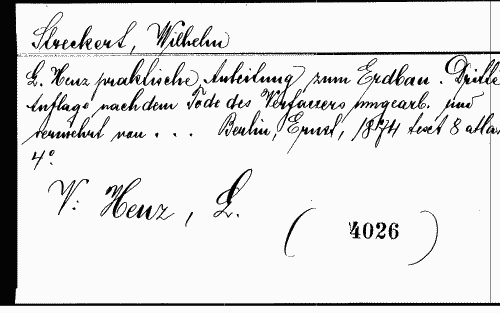 Streckert, Wilhelm
L. Henz praktische Anteilung zum Erdbau. Dritte
Auflage nach dem Tode des Verfassers umgearb. und
vermehrt von . . . Berlin, Ernst, 1874 text 8 atlas
4°.
V: Henz, L.
(4026)